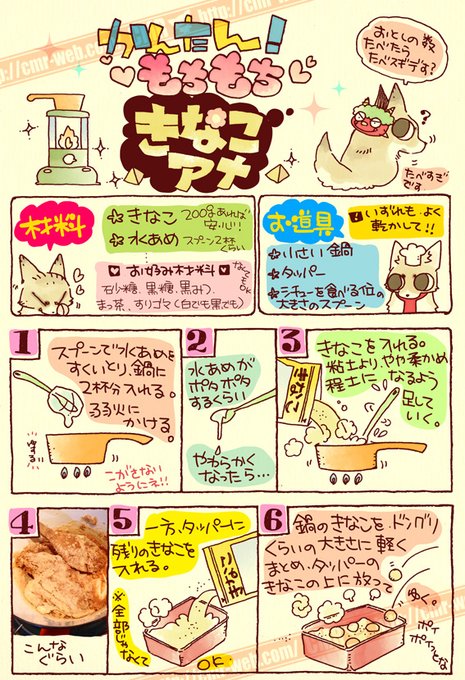 http://cmr-web.com
http://
かんたん！
もちもち
きなこ
アメ
おとしの数
たべたら
たべスギデス？
?
たべすぎ
です
材料
☆きなこ 200gあれば
安心！！
☆水あめ スプーン2杯
くらい
♥お好み材料♥
なくてもOK
砂糖、黒糖、黒みつ、
まっ茶、すりゴマ(白でも黒でも)
お道具
！いずれも よく
乾かして！！
☆小さい鍋
☆タッパー
☆シチューを食べる位の
大きさのスプーン
1
スプーンで水あめを
すくいとり、鍋に
2杯分入れる。
弱火に
かける。
こがさない
ようにネ！！
2
水あめが
ポタポタ
するくらい
やわらかく
なったら…
3
きなこを入れる。
粘土より、やや柔かめ
程土に なるよう
足して
いく。
きなこ
4
こんな
ぐらい
5
一方、タッパーに
残りのきなこを
入れる。
きなこ
※全部じゃなくて
OK
6
鍋のきなこを、ドングリ
くらいの大きさに軽く
まとめ、タッパーの
きなこの上に放って
ゆく。
ポイ
ポイっとな
http://cmr-web.com/